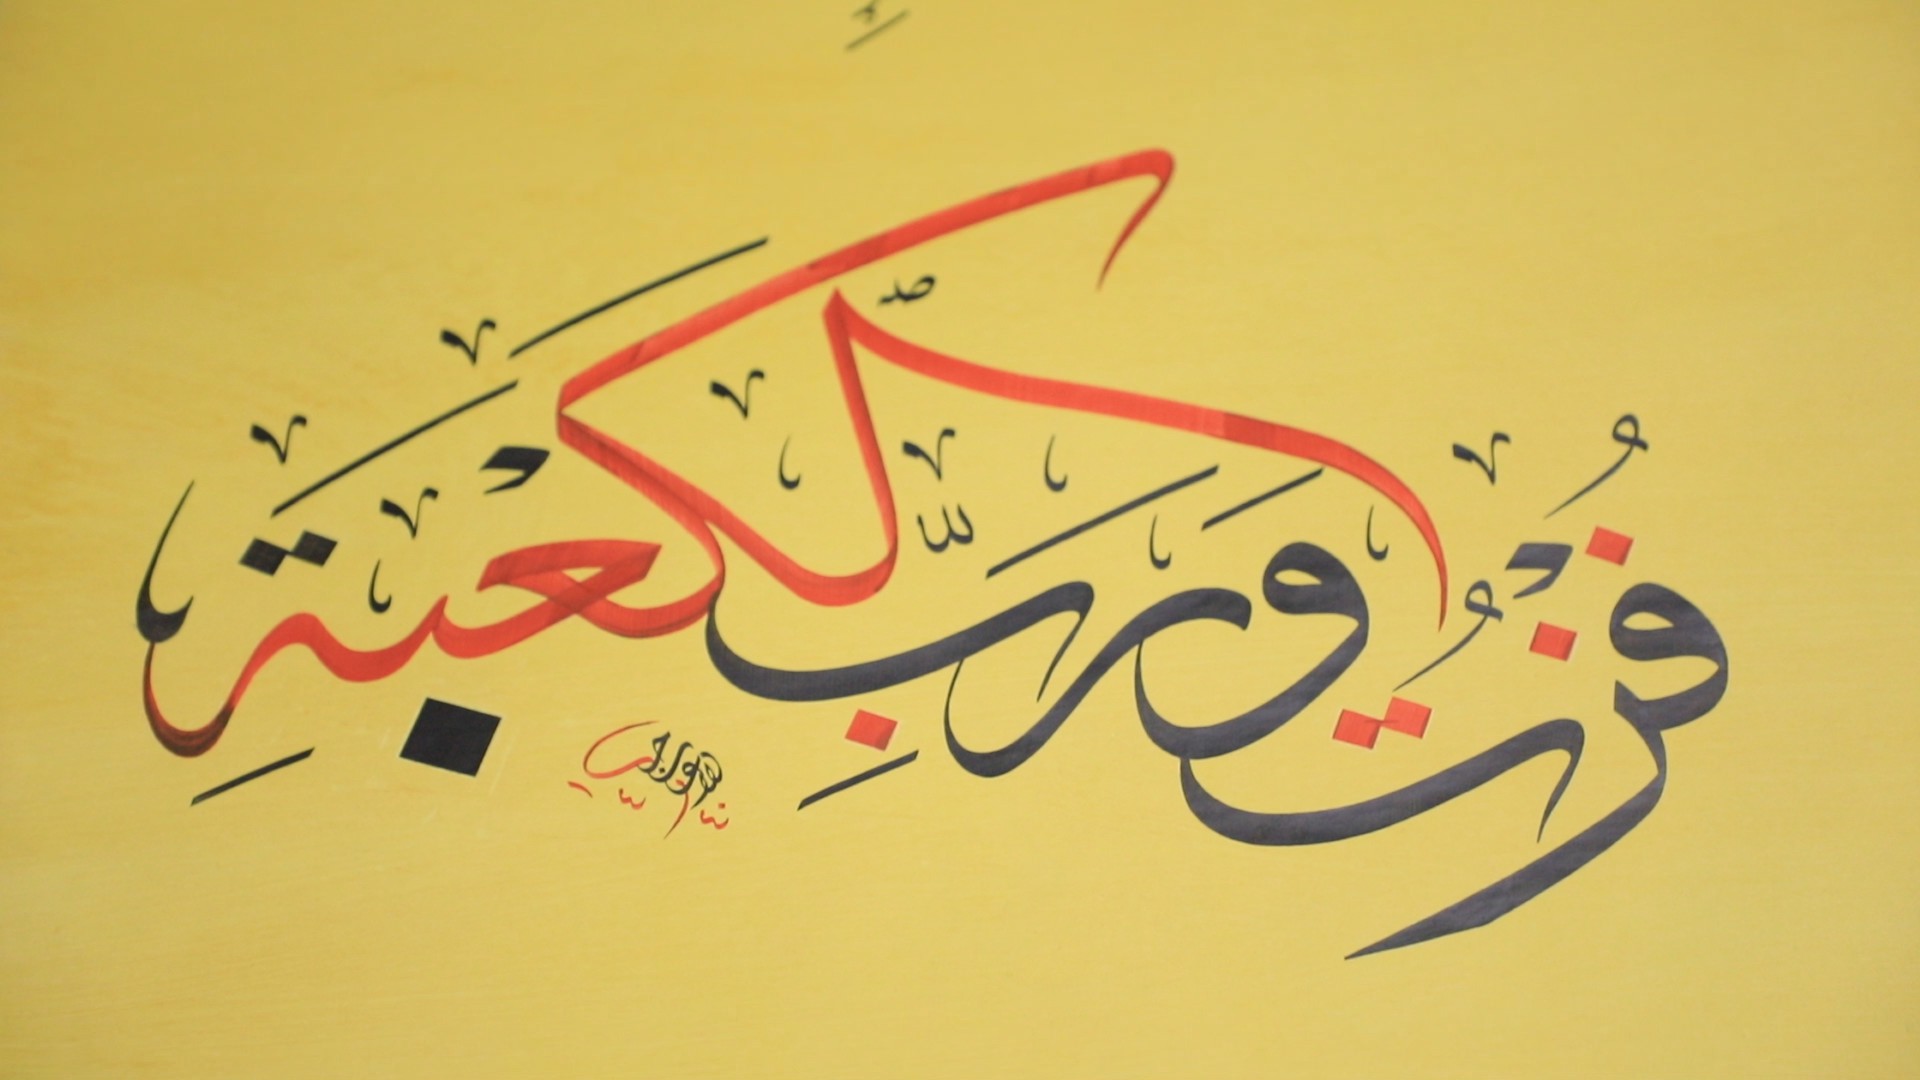 فُزْتُ وَرَبِّ ٱلْكَعْبَةِ